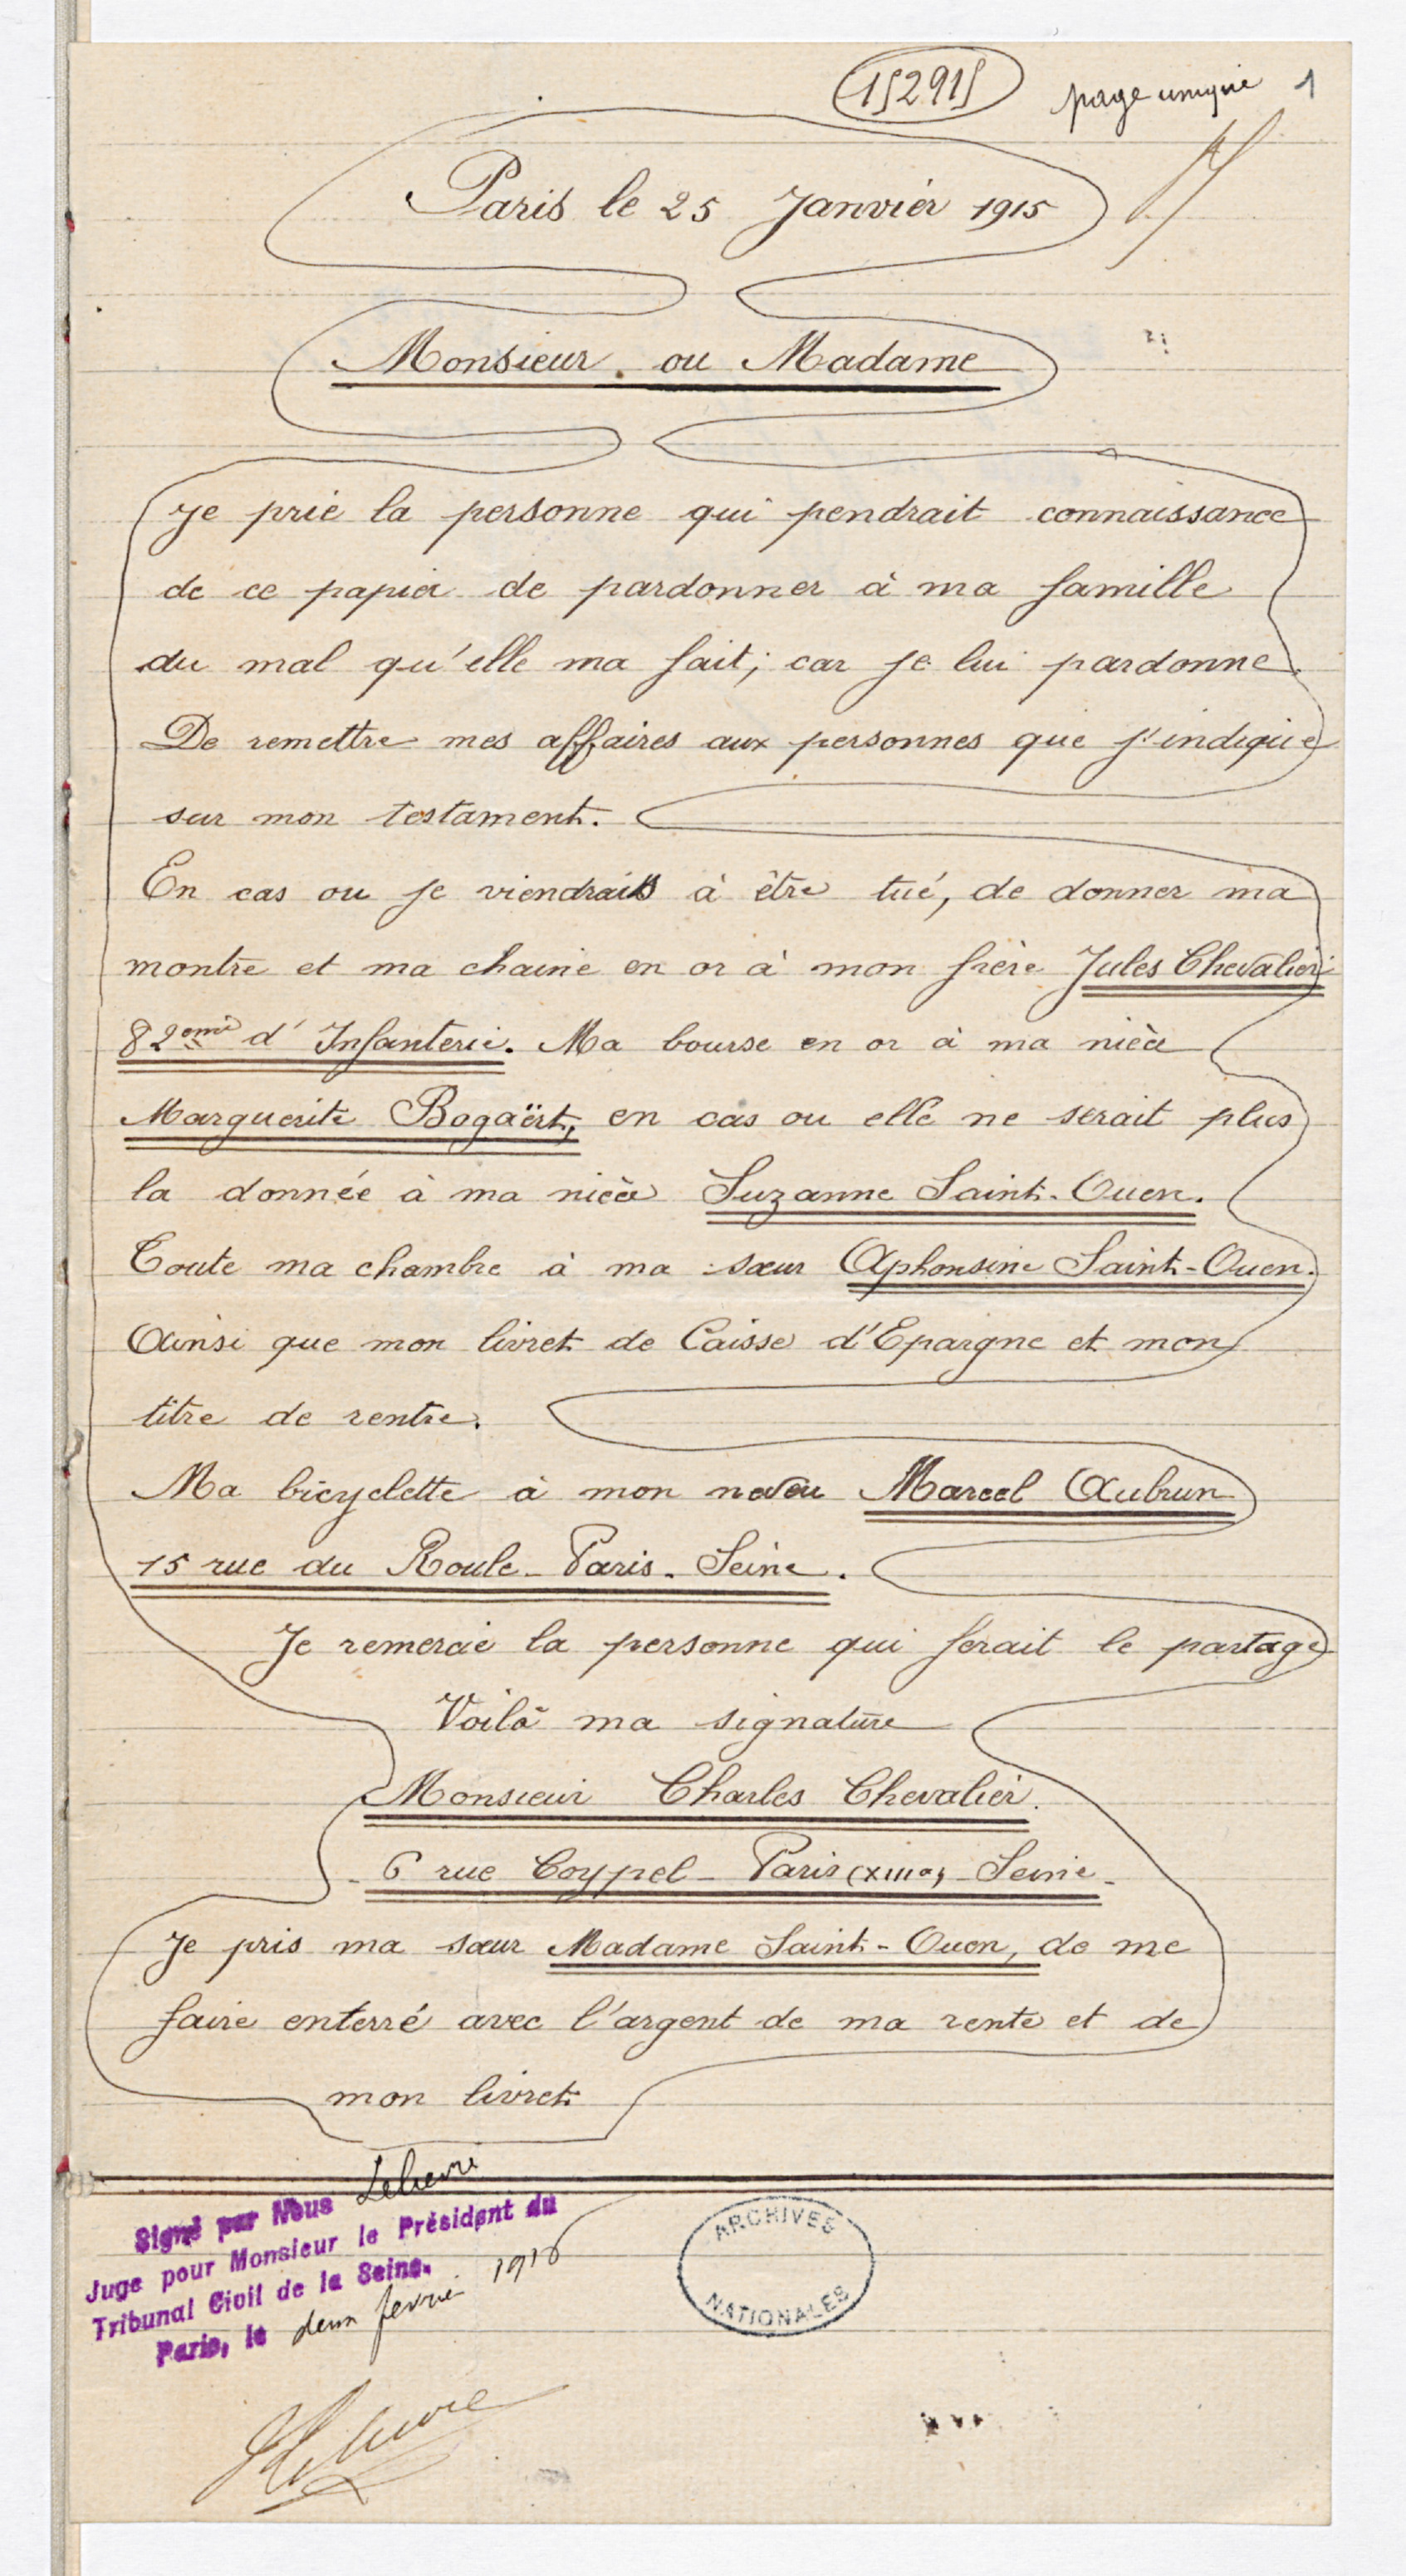 15291S
page unique 1
Paris le 25 Janvier 1915
Monsieur. ou Madame
Je prie la personne qui pendrait connaissance
de ce papier de pardonner à ma famille
du mal qu'elle ma fait; car je lui pardonne.
De remettre mes affaires aux personnes que j'indique
sur mon testament.
En cas ou je viendrais à être tué, de donner ma
montre et ma chaine en or à mon frère Jules Chevalier
82eme d'Infanterie. Ma bourse en or à ma nièce
Marguerite Bogaërt, en cas ou elle ne serait plus
la donnée à ma nièce Suzanne Saint-Ouen.
Toute ma chambre à ma sœur Aphonsine Saint-Ouen.
Ainsi que mon livret de Caisse d'Epargne et mon
titre de rentre.
Ma bicyclette à mon neveu Marcel Aubrun
15 rue du Roule - Paris - Seine.
Je remercie la personne qui ferait le partage
Voilà ma signature
Monsieur Charles Chevalier.
6 rue Coypel - Paris (XIIIe) - Seine -
Je pris ma sœur Madame Saint-Ouen, de me
faire enterré avec l'argent de ma rente et de
mon livret.
Signé par Nous
Juge pour Monsieur le Président du
Tribunal Civil de la Seine.
Paris, le deux février 1916
ARCHIVES
NATIONALES